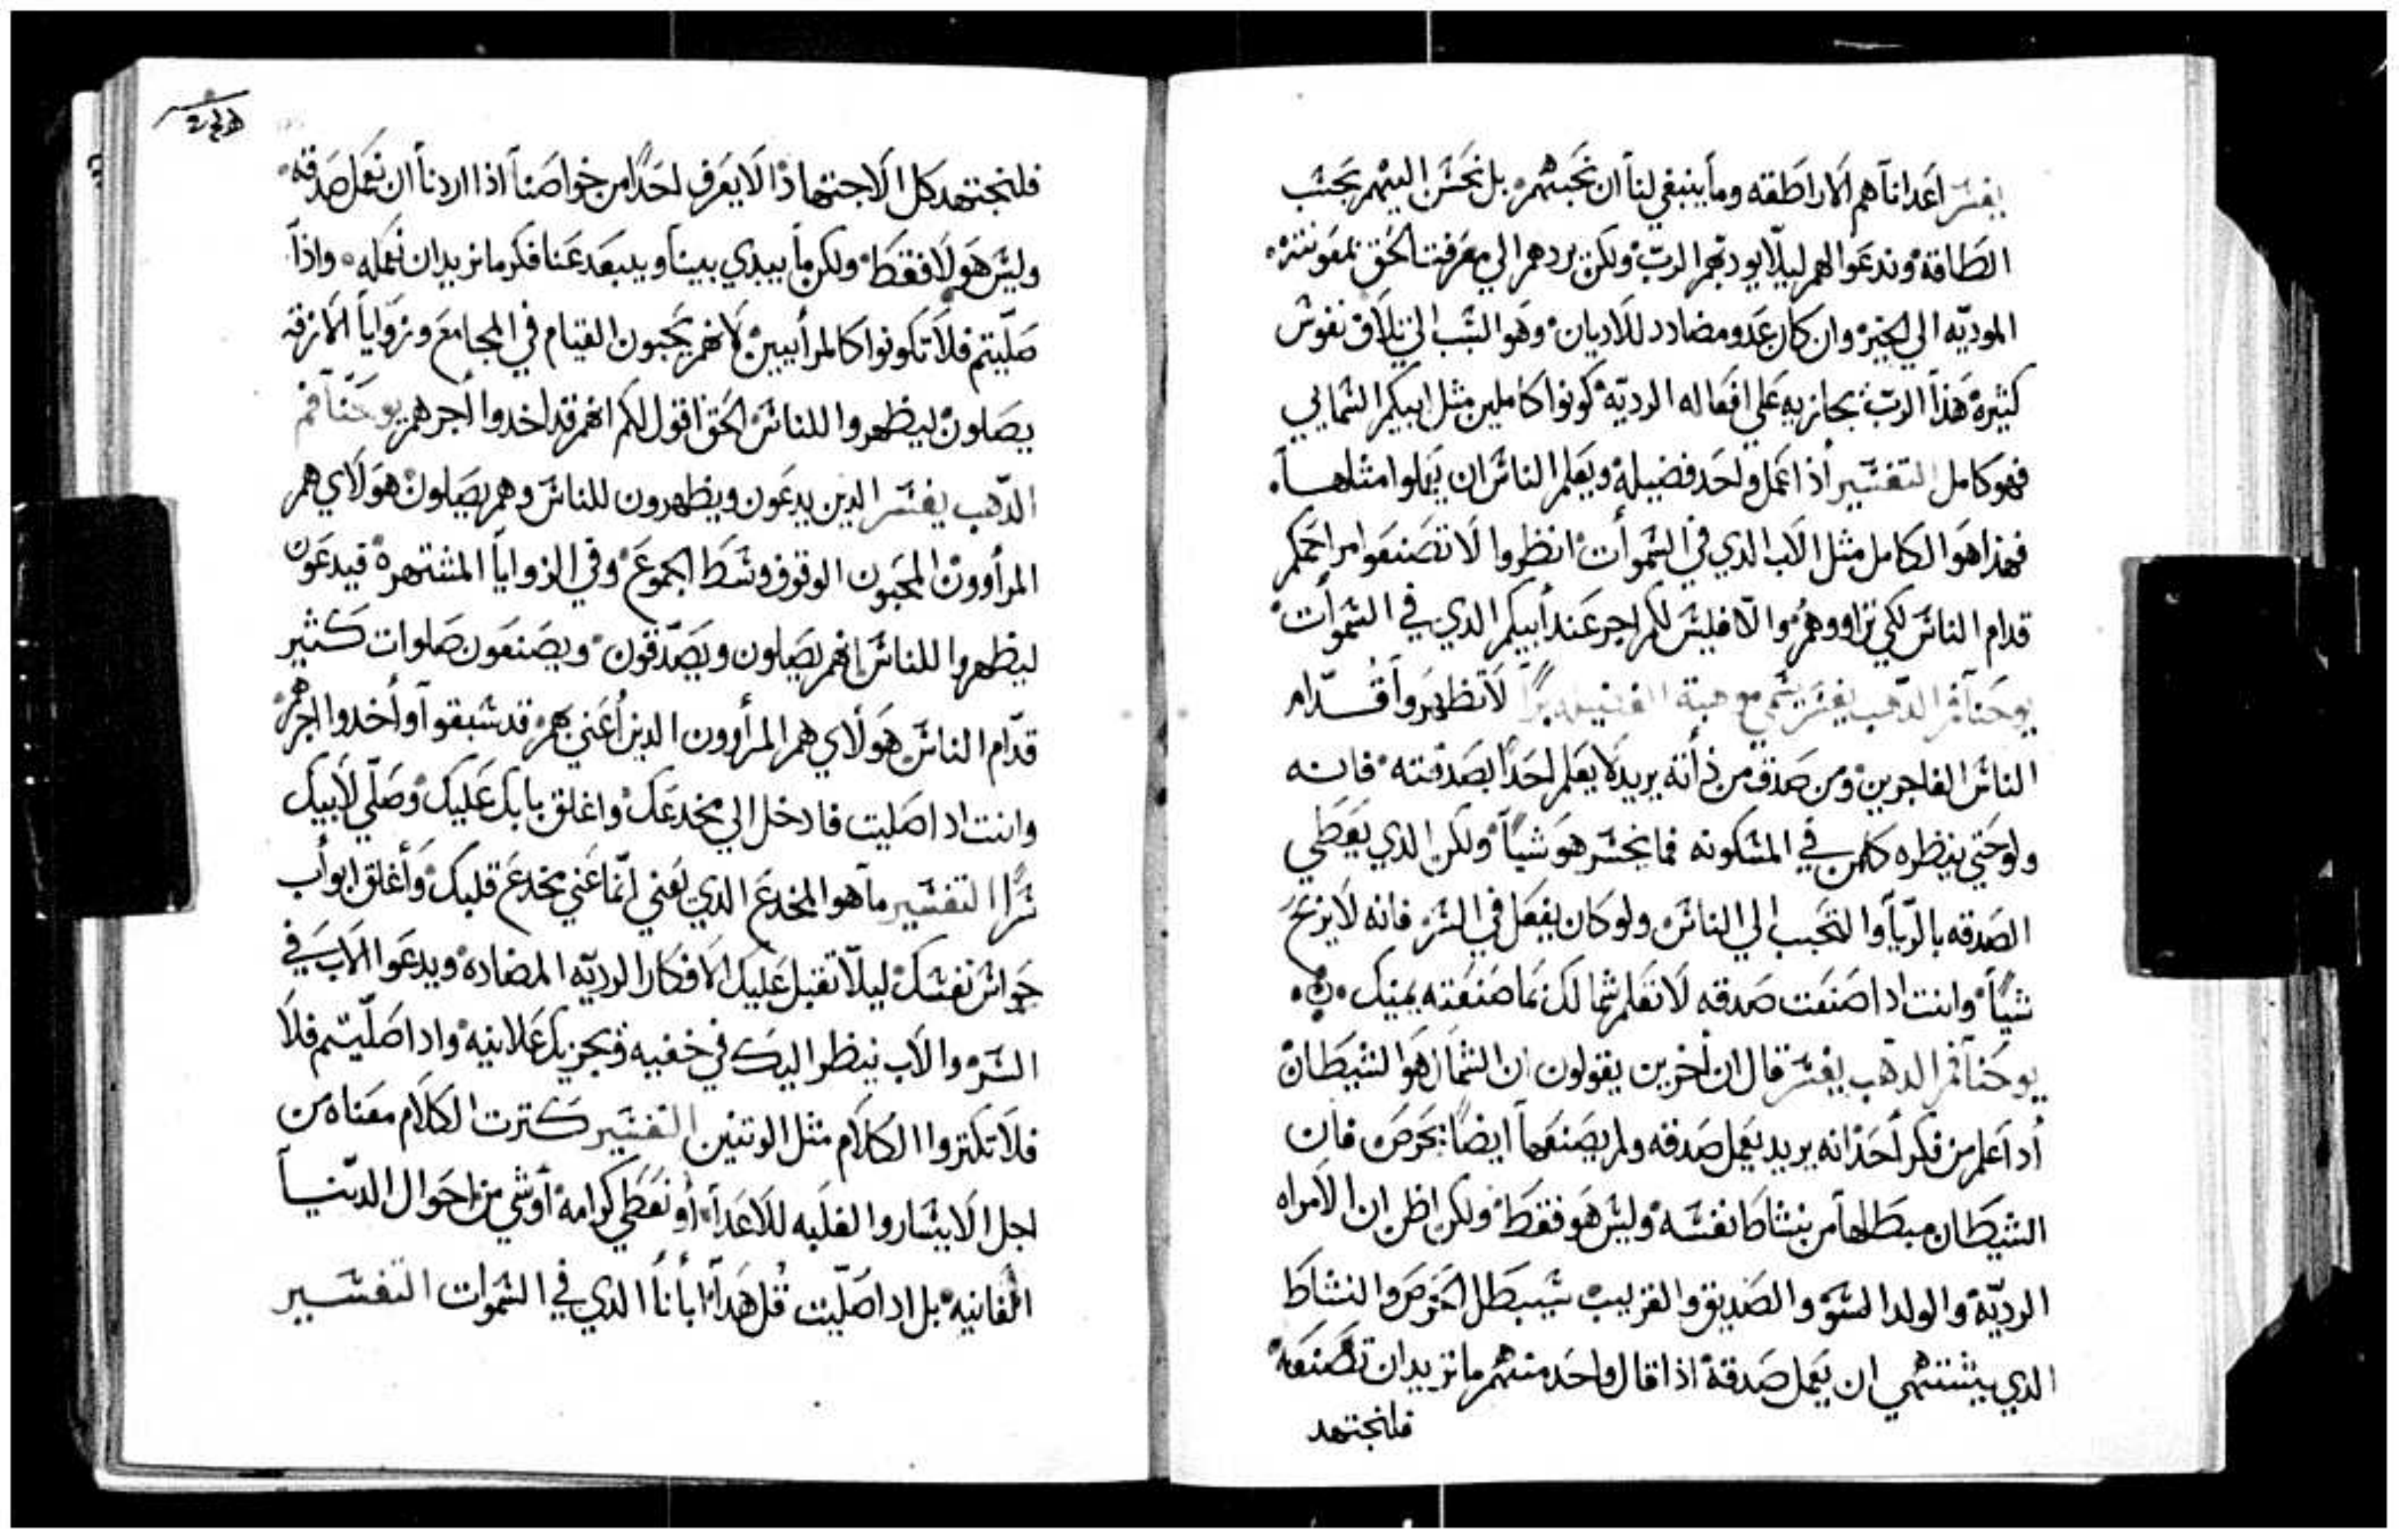 يفسر اعداناَ هم الاراطقه وماَ ينبغي لناَ ان نحبهم بل نحسن اليهم بحسب
الطاقة وندعوا لهم ليلاَ يوديهم الرب ولكن يردهم الي معرفت الحق بمعونته
الموديّه الي الخير وان كان عدو مضادد للاديان وهو السبب الي تلاف نفوس
كثيره هذا الرب يجازيه علي افعاله الرديّه كونوا كاملين مثل ابيكم السمايي
فهو كامل التفسير أذا عمل واحد فضيلة ويعلم الناس ان يعملوا مثلهاَ
فهذا هو الكامل مثل الاب الدي في السموات انظروا لا تصنعوا مراحمكم
قدام الناس لكي تراووهم والاّ فليس لكم اجر عند أبيكم الدي في السموات
يوحناَ فم الدهب يفسر لاَ تظهرواَ قدّام
الناس الفاجرين ومن صدق من ذأته يريد لا يعلم احداً بصدقته فانه
ولو حتي ينظره كلمن في المسكونه فما يخسر هو شياً ولكن الدي يعطي
الصدقه بالرّياَ والتحبب الي الناس ولو كان يفعل في السر فانه لا يربح
شياً وانت ادا صنعت صدقه لا تعلم شمالك بما صنعته يمينك
يوحناَ فم الدهب يفسر قال ان أخرين يقولون ان الشمال هو الشيطان
أدا علم من فكر أحد انه يريد يعمل صدقه ولم يصنعهاَ ايضاً بحرص فان
الشيطان مبطالهاَ من نشاط نفسه وليس هو فقط ولكن اظن ان الامراه
الرديّه والولد السو والصديق والقريب سيبطل الحرص والنشاط
الدي يشتهي ان يعمل صدقة اذا قال واحد منهم ما نريد ان تصنعه
فلنجتهد
فلنجتهد كل الاجتهاد الا يعرف احداً من خواصناَ اذا اردناَ ان نعمل صدقه
وليس هولا فقط ولكن ماَ يبدي بيناَ ويبعد عنا فكر ما نريد ان نعمله واذاَ
صلّيتم فلاَ تكونوا كالمرأيين لانهم يحبون القيام في المجامع وزواياَ الازقه
يصلون ليظهروا للناس الحق اقول لكم انهم قد اخدوا أجرهم يوحناَ فم
الدّهب يفسر الدين يدعون ويظهرون للناس وهم يصلون هولاي هم
المرأوون المحبون الوقوف وسط الجموع وفي الزواياَ المشتهره فيدعون
ليظهروا للناس انهم يصلون ويصّدقون ويصنعون صلوات كثير
قدّام الناس هولاي هم المرأوون الدين أعني بهم قد سبقواَ وأخدوا اجرهم
وانت ادا صليت فادخل الي مخدعك واغلق بابك عليك وصلّي لأبيك
سراً التفسير ماَ هو المخدع الدي يعني انّما عني مخدع قلبك وأغلق ابوأب
حواس نفسك ليلاّ تقبل عليك الافكار الرديّه المضاده ويدعوا الاب في
السر والاب ينظر اليك في خفيه ويجزيك علانيه وادا صلّيتم فلاَ
فلا تكتروا الكلام مثل الوتنين التفسير كترت الكلام معناه من
اجل الايسار والغلبه للاعداَ أو تعطي كرامه أو شي من احوال الدنياَ
الفانيه بل ادا صلّيت قل هداَ أباناَ الدي في السموات التفسير